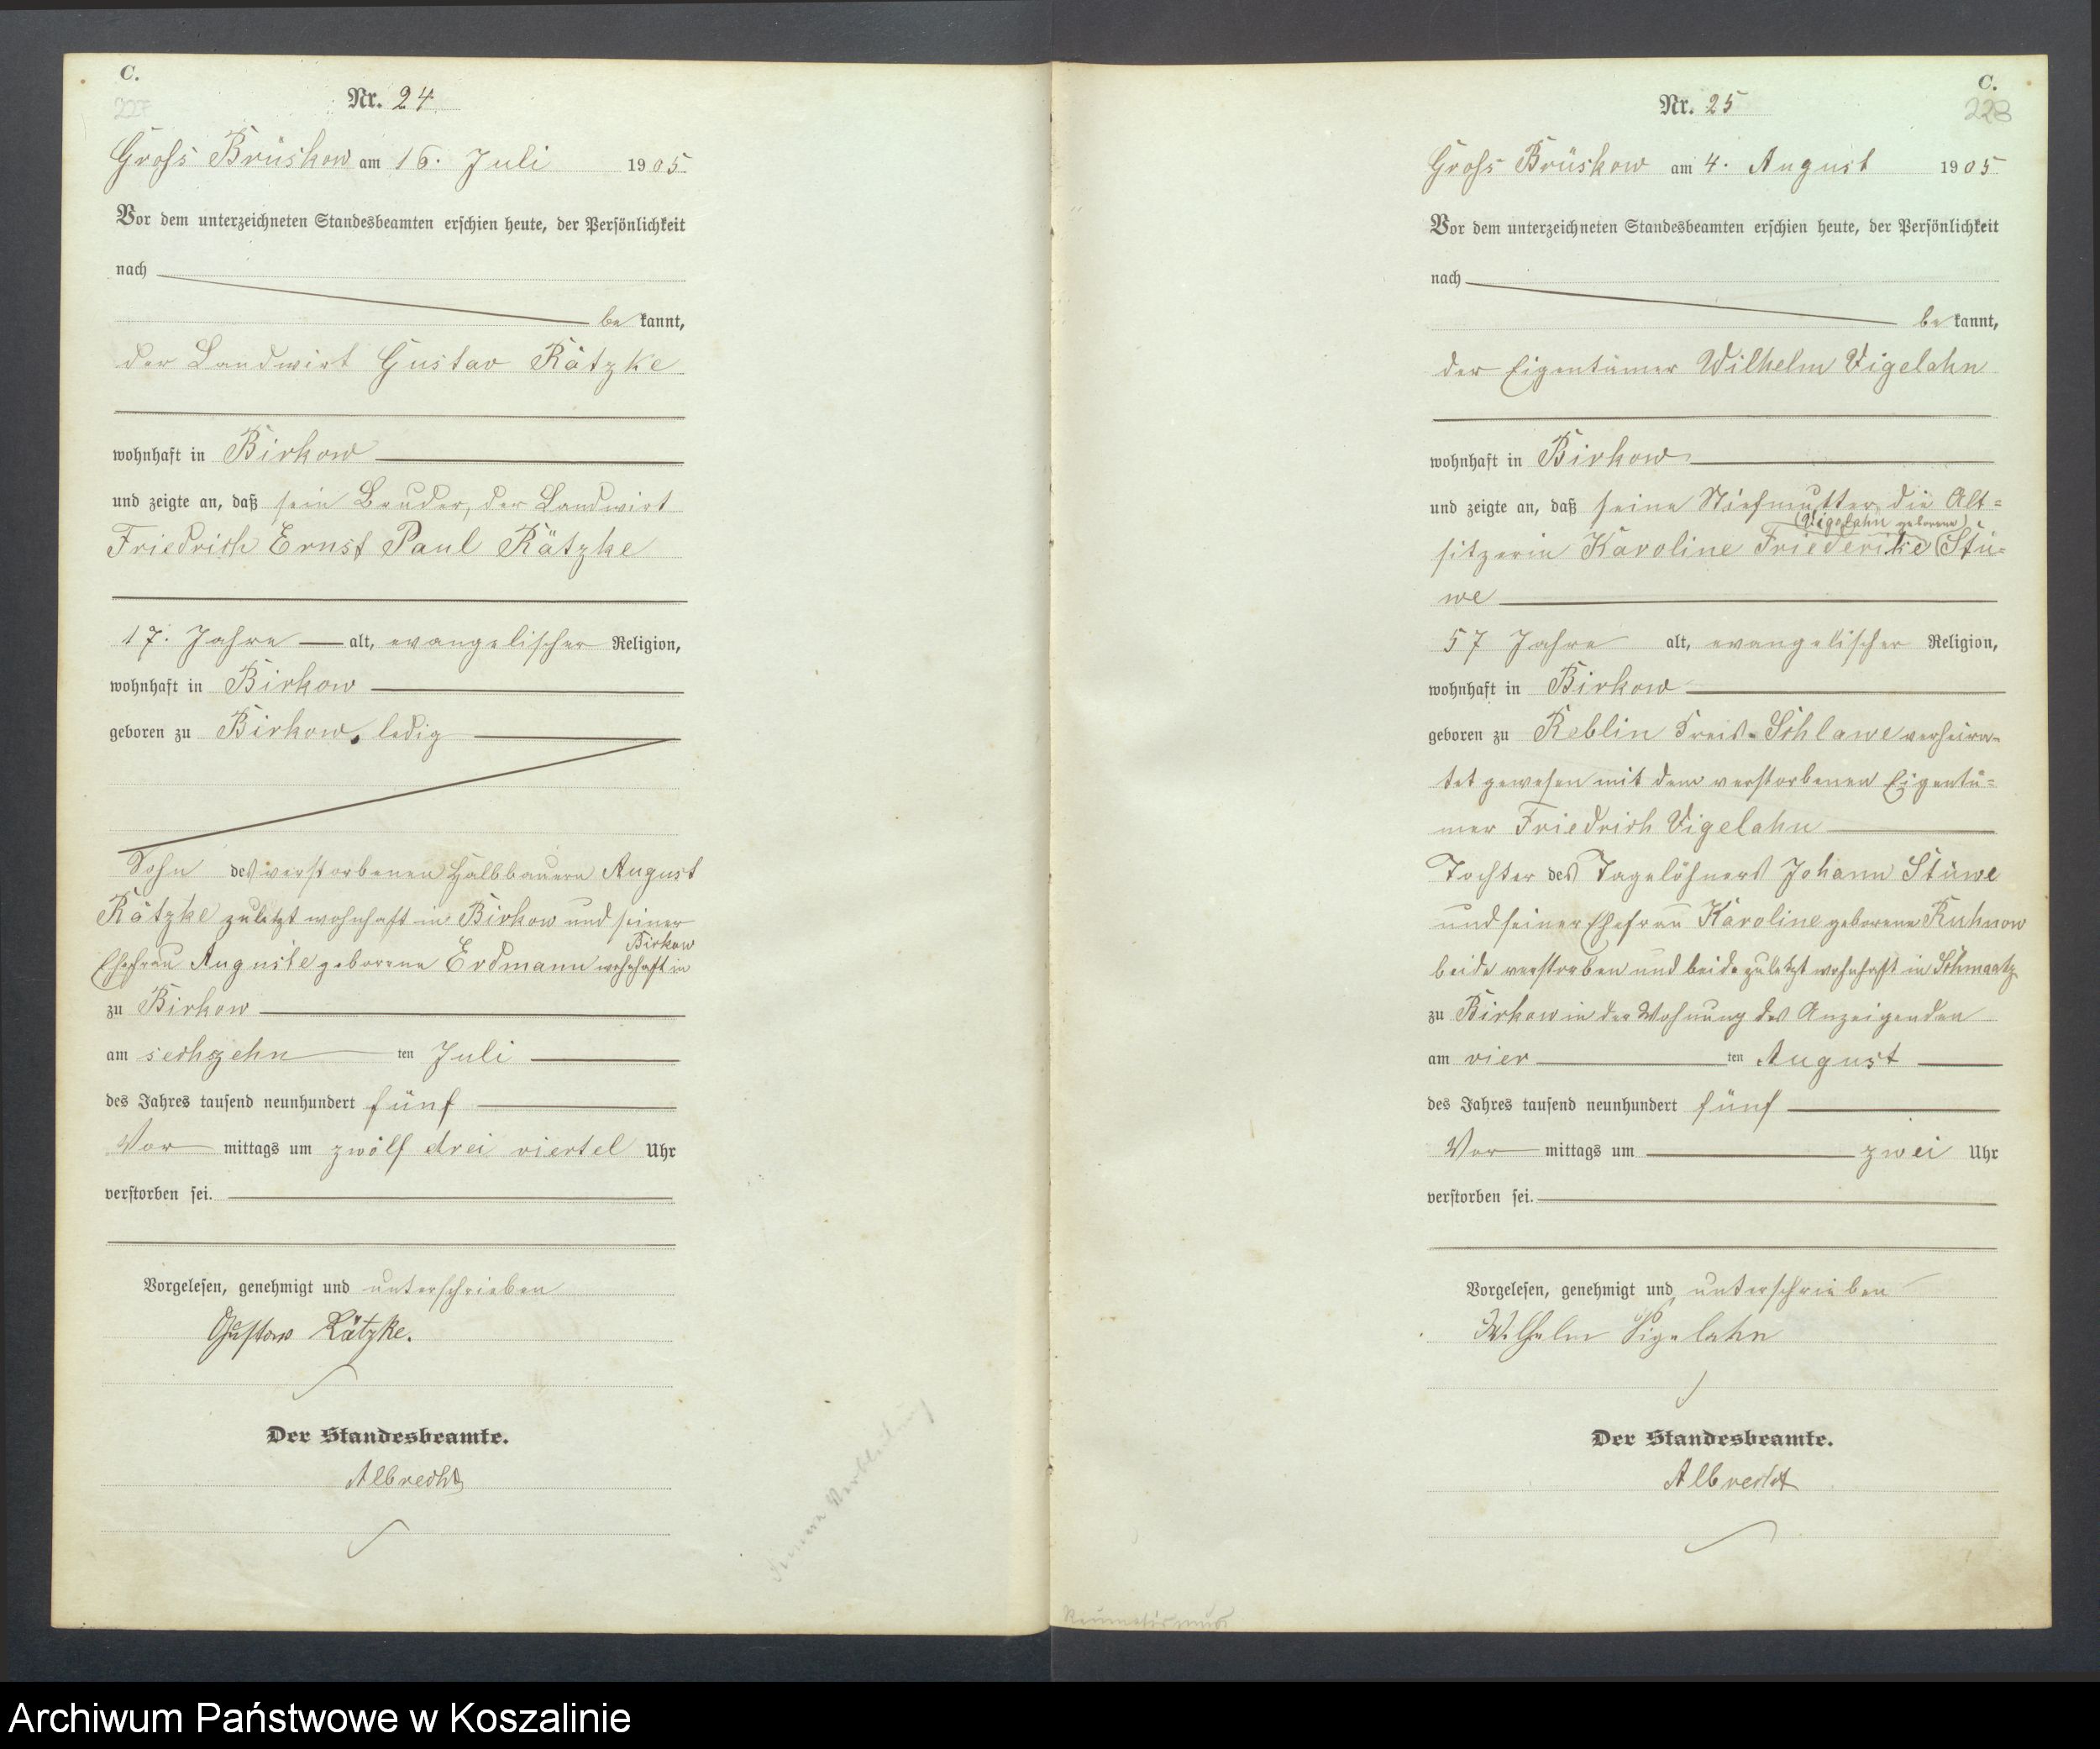 C.
227
Nr. 24
Gross Brüskow am 16. Juli 1905.
Vor dem unterzeichneten Standesbeamten erschien heute, der Persönlichkeit
nach
be kannt,
der Landwirt Gustav Rätzke
wohnhaft in Birkow
und zeigte an, daß sein Bruder, der Landwirt
Friedrich Ernst Paul Rätzke
17. Jahre alt, evangelischer Religion,
wohnhaft in Birkow
geboren zu Birkow, ledig
Sohn des verstorbenen Halbbauern August
Rätzke zuletzt wohnhaft in Birkow und seiner
Birkow
Ehefrau Auguste geborene Erdmann wohnhaft in
zu Birkow
am sechszehn ten Juli
des Jahres tausend neunhundert fünf
Vor mittags um zwölf drei viertel Uhr
verstorben sei.
Vorgelesen, genehmigt und unterschrieben
Gustav Rätzke.
Der Standesbeamte.
Albrecht
C.
228
Nr. 25
Gross Brüskow am 4. August 1905
Vor dem unterzeichneten Standesbeamten erschien heute, der Persönlichkeit
nach
be kannt,
der Eigentümer Wilhelm Vigelahn
wohnhaft in Birkow
und zeigte an, daß seine Stiefmutter, die Alt=
(Vigelahn geborene)
sitzerin Karoline Friederike (Stü=
we
57 Jahre alt, evangelischer Religion,
wohnhaft in Birkow
geboren zu Reblin Kreis Schlawe verheira-
tet gewesen mit dem verstorbenen Eigentü=
mer Friedrich Vigelahn
Tochter des Tagelöhners Johann Stüwe
und seiner Ehefrau Karoline geborene Kuhnow
beide verstorben und beide zuletzt wohnhaft in Schmaatz
zu Birkow in der Wohnung des Anzeigenden
am vier ten August
des Jahres tausend neunhundert fünf
Vor mittags um zwei Uhr
verstorben sei.
Vorgelesen, genehmigt und unterschrieben
Wilhelm Vigelahn
Der Standesbeamte.
Albrecht
Archiwum Państwowe w Koszalinie